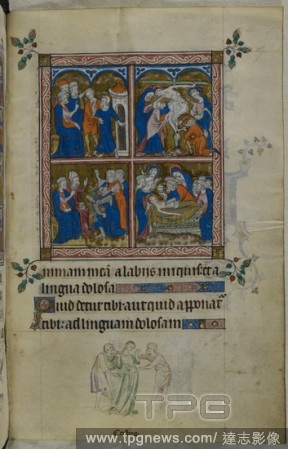 nimam meā a labijs iniquis et a
lingua dolosa
Quid detur tibi aut quid apponat᷑
tibi ad linguam dolosam
TPG
www.tpgnews.com / 達志影像